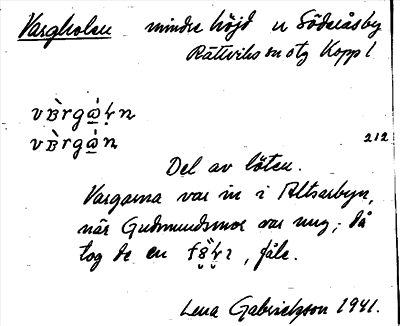 Vargholen mindre höjd n Söderåsby
Rättviks sn otg Koppl
vʙ̀rgɷ̀ɬn
vʙ̀rgɷ̀n
212
Del av löten.
Vargarna var in i Altsarbyn,
när Gudmundsmor var ung; då
tog de en , fåle.
Lena Gabrielsson 1941.